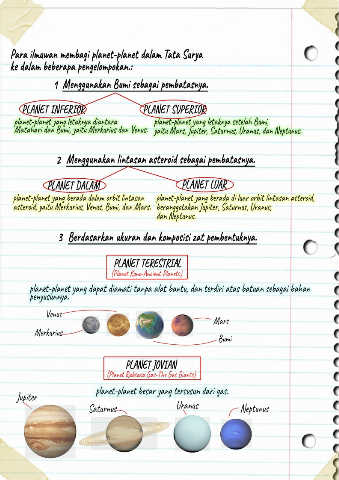 Para ilmuwan membagi planet-planet dalam Tata Surya
ke dalam beberapa pengelompokan.:
1 Menggunakan Bumi sebagai pembatasnya.
PLANET INFERIOR
planet-planet yang letaknya diantara
Matahari dan Bumi, yaitu Merkurius dan Venus.
PLANET SUPERIOR
planet-planet yang letaknya setelah Bumi,
yaitu Mars, Jupiter, Saturnus, Uranus, dan Neptunus.
2 Menggunakan lintasan asteroid sebagai pembatasnya.
PLANET DALAM
planet-planet yang berada dalam orbit lintasan
asteroid, yaitu Merkurius, Venus, Bumi, dan Mars.
PLANET LUAR
planet-planet yang berada di luar orbit lintasan asteroid,
beranggotakan Jupiter, Saturnus, Uranus,
dan Neptunus.
3 Berdasarkan ukuran dan komposisi zat pembentuknya.
PLANET TERESTRIAL
planet-planet yang dapat diamati tanpa alat bantu, dan terdiri atas batuan sebagai bahan
penyusunnya.
Venus
Merkurius
Mars
Bumi
PLANET JOVIAN
(Planet Raksasa Gas-The Gas Giants)
planet-planet besar yang tersusun dari gas.
Jupiter
Saturnus
Uranus
Neptunus